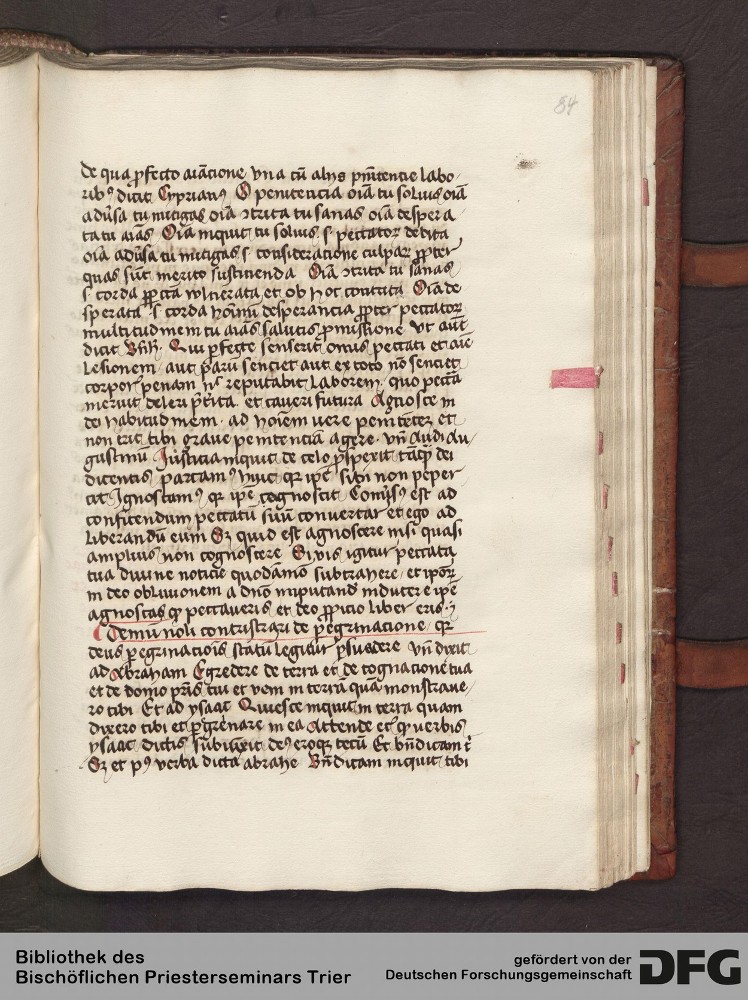 84
de qua profecto aiacione vna cu alijs pnitentie labo
rib9 dicit Cyprian9 O penitencia oia tu soluis oia
aduersa tu mitigas oia contrita tu sanas oia despera
tata aias Oia inquit tu soluis s peccator debita
oia aduersa tu mitigas s consideracione culpar propter
quas sunt merito sustinenda Oia contrita tu sanas
s corda vulnerata et ob hoc contrita Oia de
sperata s corda hoim desperancia propter peccator
multitudinem tu aias salutis promissione Vt aut
dicit Qui perfecte senserit onus peccati et aie
lesionem aut paru senciet aut ex toto no senciet
corpor penam nec reputabit laborem quo peccata
meruit deleri preterita et caueri futura Agnosce in
dei habitudinem ad hoiem vere penitetez et
non erit tibi graue penitencia agere vn Audi Au
gustinu Iusticia inquit de celo prospexit tanq dei
dicentis parcam9 huic qr ipe sibi non peper
cit Ignoscam9 qr ipe cognoscit Conuers9 est ad
confitendum peccatu suu conuertar et ego ad
liberandu eum Sz quid est agnoscere nisi quasi
amplius non cognoscere Si vis igitur peccata
tua diuine noticie quodamo subtrahere et ipor
in deo obliuionem a dno imputand inducere ipe
agnoscas q peccaueris et deo propicio liber eris
Demu noli contristari de peregrinacione qr
deus peregrinacois statu legitur persuadere vn dixit
ad Abraham Egredere de terra et de cognacione tua
et de domo pris tui et veni in terra qua monstraue
ro tibi Et ad ysaac Quiesce inquit in terra quam
dixero tibi et peregrinare in ea Attende et q verbis
ysaac dictis subiuxit de9 eroq tecu Et bndicam t
Sz et p9 verba dicta abrahe Bndicam inquit tibi
Bibliothek des
Bischöflichen Priesterseminars Trier
gefördert von der
Deutschen Forschungsgemeinschaft
DFG